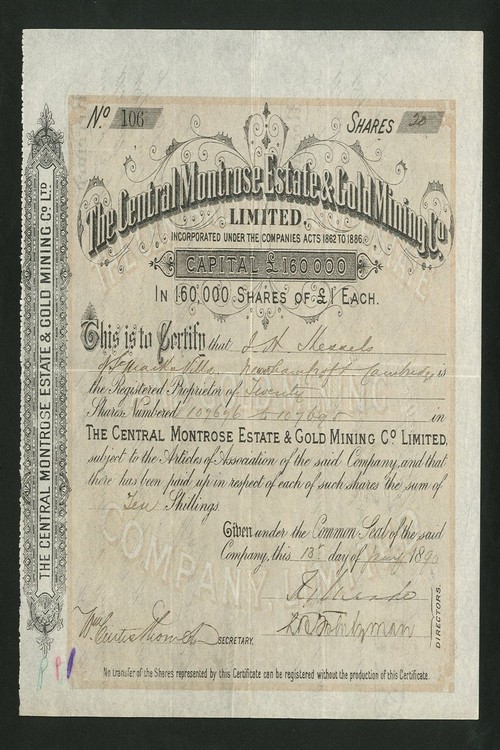 No 106
SHARES 20
The Central Montrose Estate & Gold Mining Co
LIMITED.
INCORPORATED UNDER THE COMPANIES ACTS 1862 TO 1886.
CAPITAL £160000
IN 160,000 SHARES OF £1 EACH.
This is to Certify that
Villa Cambridge is
the Registered Proprietor of Twenty
Shares Numbered in
THE CENTRAL MONTROSE ESTATE & GOLD MINING Co LIMITED,
subject to the Articles of Association of the said Company, and that
there has been paid up in respect of each of such shares the sum of
Ten Shillings.
Given under the Common Seal of the said
Company, this day of 189
Wm Curtis
SECRETARY.
DIRECTORS.
No transfer of the Shares represented by this Certificate can be registered without the production of this Certificate.
THE CENTRAL MONTROSE ESTATE & GOLD MINING Co LTD